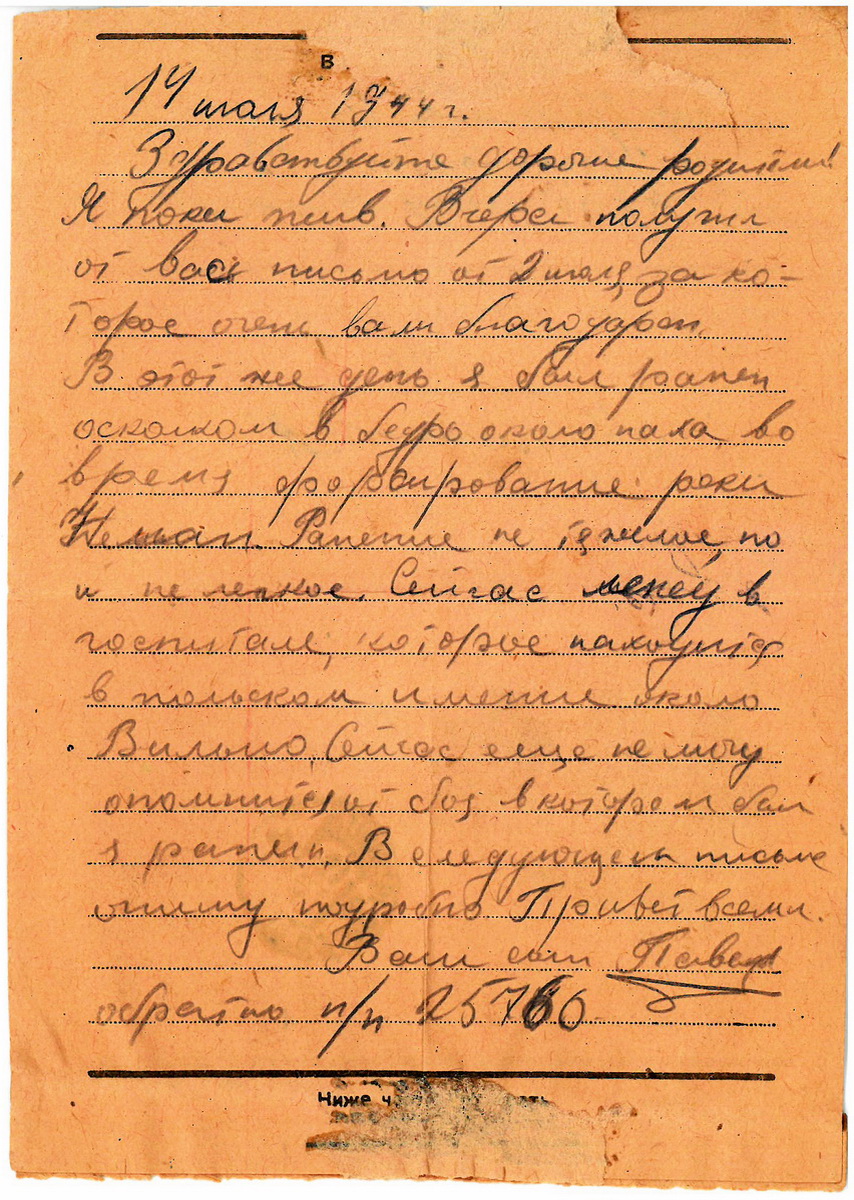 В
14 июля 1944 г.
Здравствуйте дорогие родители!
Я пока жив. Вчера получил
от вас письмо от 2 июля, за ко-
торое очень вам благодарен.
В этот же день я был ранен
осколком в бедро около паха во
время форсирование реки
Неман. Ранение не тяжелое, но
и не легкое. Сейчас лежу в
госпитале, которое находится
в польском имение около
Вильно. Сейчас еще не могу
опомнится от боя в котором был
я ранен. В следующем письме
опишу подробно Привет всем.
Ваш сын Павел
обратно п/п 25766
Ниже ч